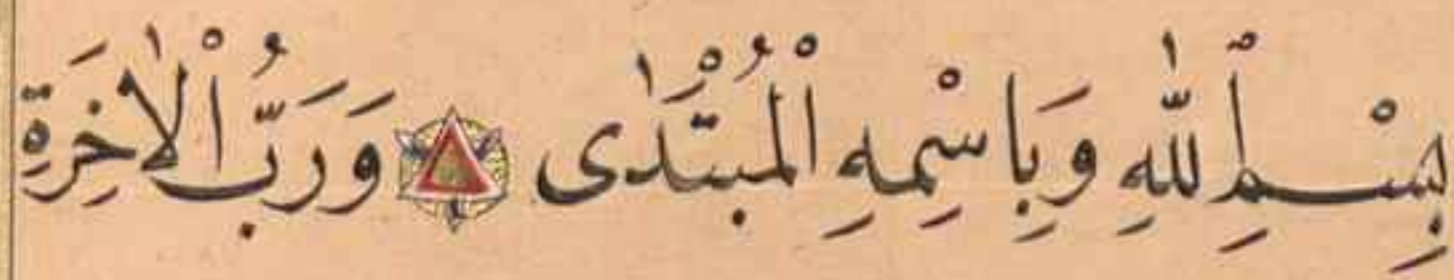 بِسْمِ اللّٰهِ وَبِاسْمِهِ الْمُبْتَدٰى وَرَبُّ الْاٰخِرَةِ